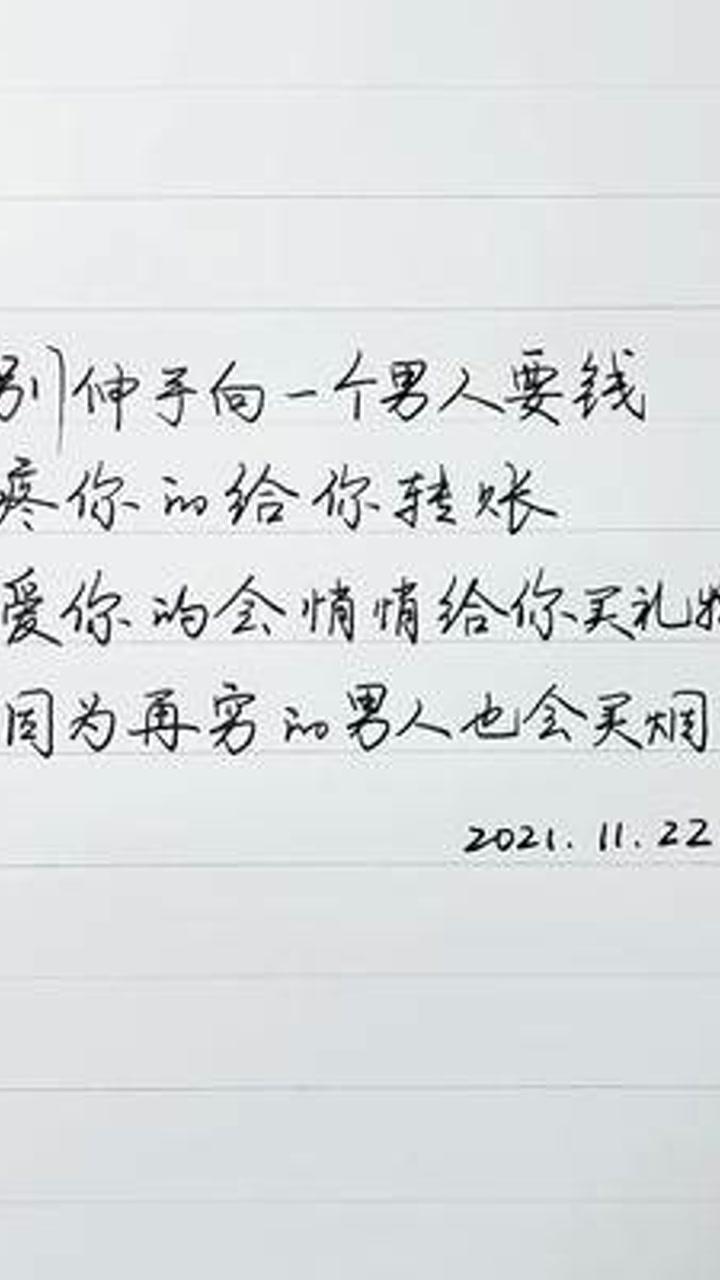 别伸手向一个男人要钱
疼你的给你转账
爱你的会悄悄给你买礼物
因为再穷的男人也会买烟
2021.11.22